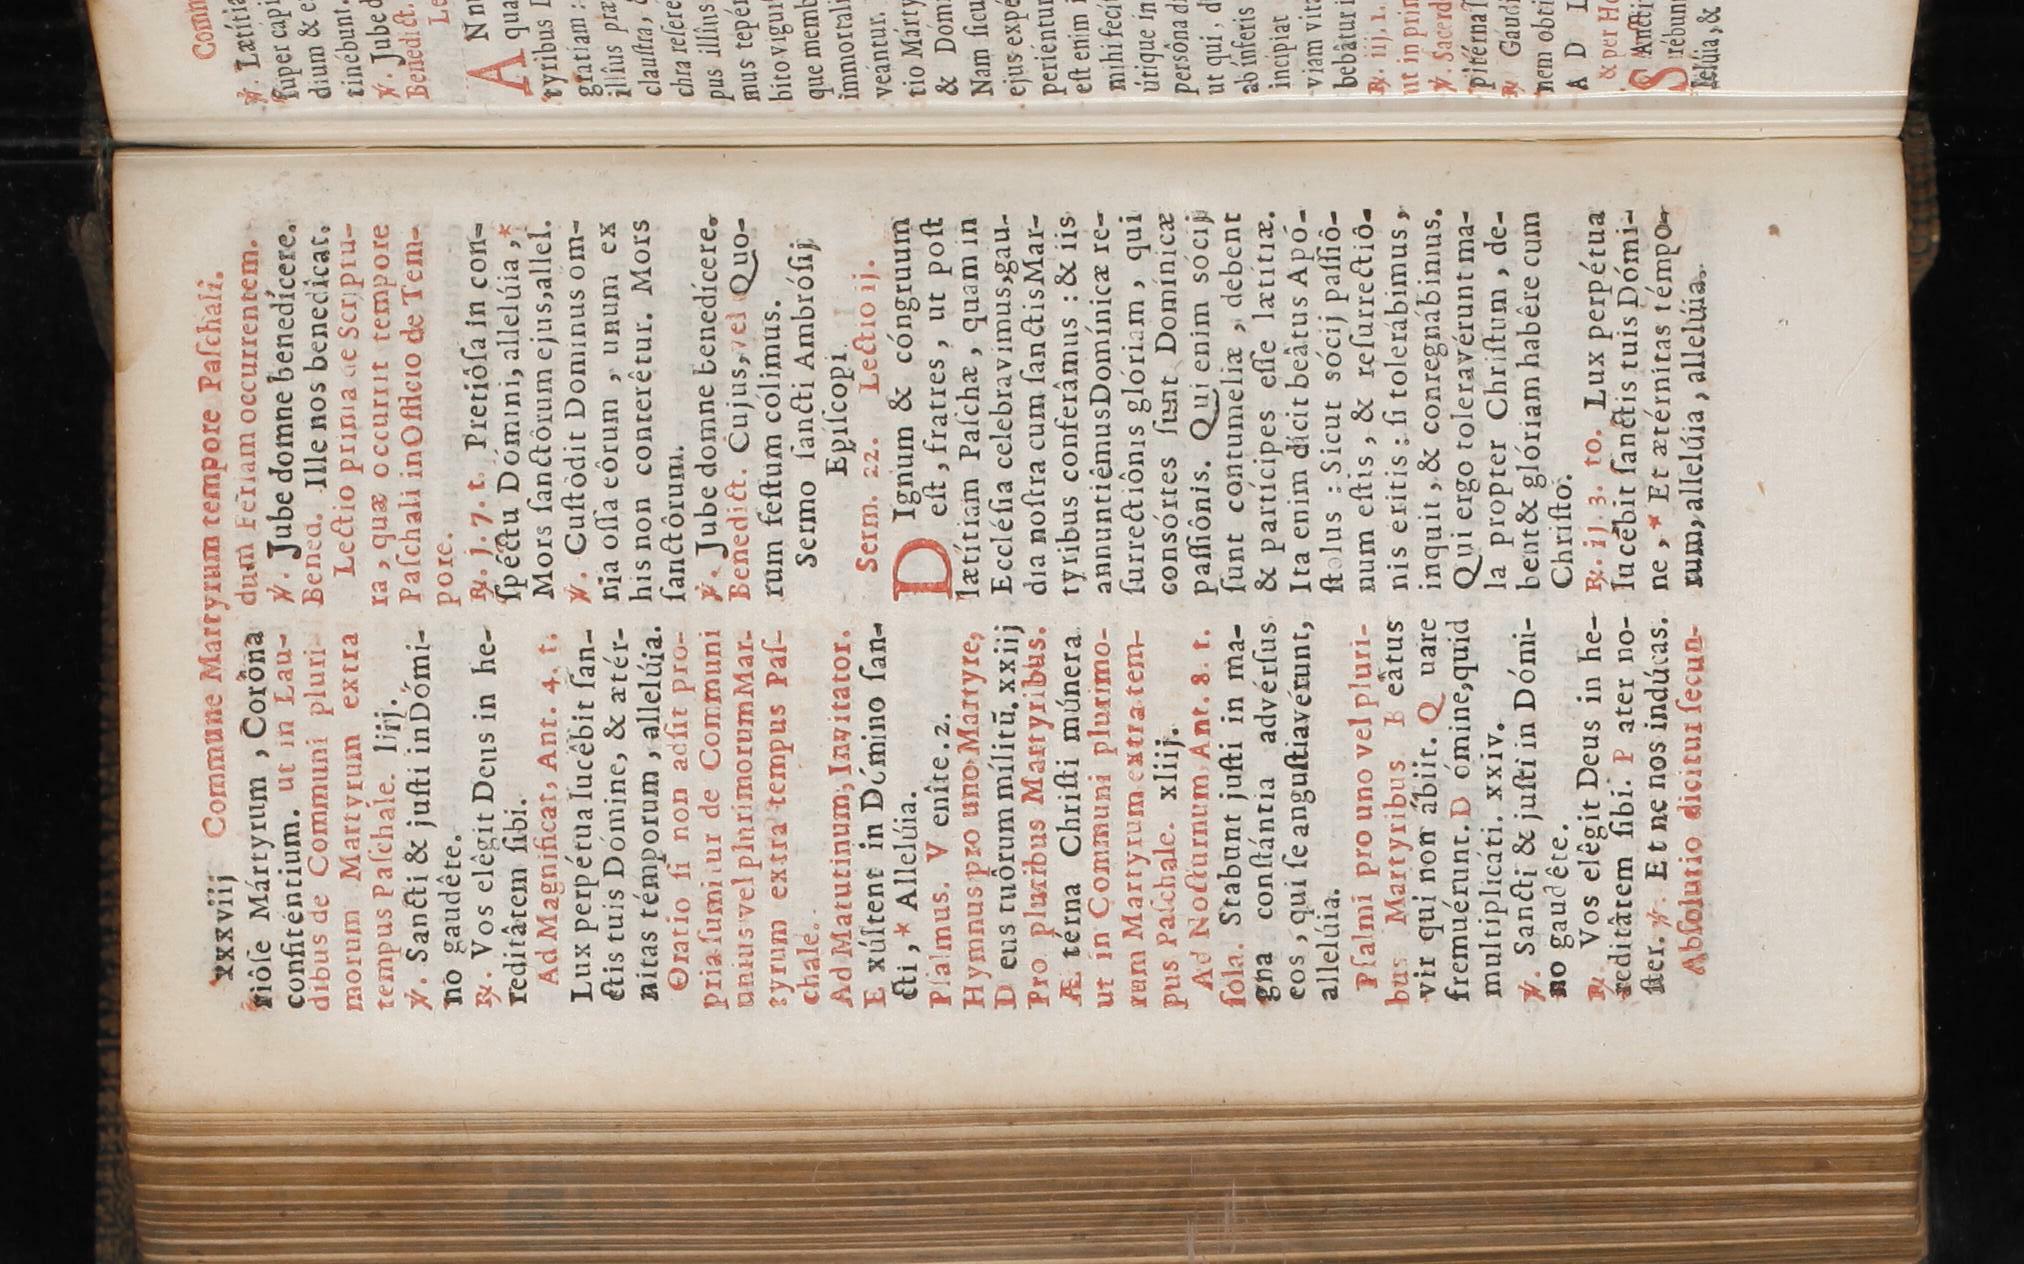 xxxviij Commune Martyrum tempore Paſchali.
riôſe Mártyrum, Corôna
conſiténtium. ut in Lau-
dibus de Communi pluri-
morum Martyrum extra
tempus Paſchale. liij.
℣. Sancti & juſti in Dómi-
no gaudête.
℟. Vos elêgit Deus in he-
reditâtem ſibi.
Ad Magnificat, Ant. 4. t.
Lux perpétua lucêbit ſan-
ctis tuis Dómine, & ætér-
nitas témporum, allelúia.
Oratio ſi non adſit pro-
pria ſumitur de Communi
unius vel plurimorum Mar-
tyrum extra tempus Paſ-
chale.
Ad Matutinum, Invitator.
E xúltent in Dómino ſan-
cti, * Allelúia.
Pſalmus. V enîte. 2.
Hymnus pro uno Martyre,
D eus tuôrum mílitū. xxiij
Pro pluribus Martyribus.
Æ térna Chriſti múnera
ut in Communi plurimo-
rum Martyrum extra tem-
pus Paſchale. xliij.
Ad Nocturnum Ant. 8. t.
ſola. Stabunt juſti in ma-
gna conſtántia advérſus
eos, qui ſe anguſtiavérunt,
allelúia.
Pſalmi pro uno vel pluri-
bus Martyribus B eâtus
vir qui non ábiit. Q uare
fremuérunt. D ómine, quid
multiplicáti. xxiv.
℣. Sancti & juſti in Dómi-
no gaudête.
℟. Vos elêgit Deus in he-
reditâtem ſibi. P ater no-
ſter. ℣. Et ne nos indúcas.
Abſolutio dicitur ſecun-
dum Feriam occurrentem.
℣. Jube domne benedícere.
Bened. Ille nos benedîcat.
Lectio prima de Scriptu-
ra, quæ occurit tempore
Paſchali in Officio de Tem-
pore.
℟. j. 7. t. Pretiôſa in con-
ſpéctu Dómini, allelúia, *
Mors ſanctôrum ejus, allel.
℣. Cuſtòdit Dominus om-
nia oſſa eôrum, unum ex
his non conterêtur. Mors
ſanctôrum.
℣. Jube domne benedícere.
Benedict. Cujus, vel Quo-
rum feſtum cólimus.
Sermo ſancti Ambróſij
Epíſcopi.
Serm. 22. Lectio ij.
D Ignum & cóngruum
eſt, fratres, ut poſt
lætítiam Paſchæ, quam in
Eccléſia celebravimus, gau-
dia noſtra cum ſanctis Mar-
tyribus conferâmus : & iis
annuntiêmus Domínicæ re-
ſurrectiônis glóriam, qui
consórtes ſunt Domínicæ
paſſiônis. Qui enim sócij
ſunt contumeliæ, debent
& partícipes eſſe lætítiæ.
Ita enim dicit beâtus Apó-
ſtolus : Sicut sócij paſſiô-
num eſtis, & reſurrectiô-
nis eritis : ſi tolerábimus,
inquit, & conregnábinus.
Qui ergo toleravérunt ma-
la propter Chriſtum, de-
bent & glóriam habêre cum
Chriſto.
℟. ij. 3. to. Lux perpétua
lucêbit ſanctis tuis Dómi-
ne, * Et ætérnitas témpo-
rum, allelúia, allelúia.
℣. Lætitia
ſuper capi
dium & e
tinébunt.
℣. Jube d
Benedict.
A Nn
qua
tyribus
gratiam :
illîus præ
clauſtra,
chra reſere
pus illîus
mus tepér
bito viguit
que memb
immorali
veántur.
tio Márty
& Dómi
Nam ſicu
ejus expé
periéntur
eſt enim
mihi fecit
útique in
persôna di
ut qui, d
ab inferis
incipiat
viam vitæ
bebâtur i
℟. iij. 1.
ut in prim
℣. Sacerd
pitérna
℟. Gaudi
nem obti
A D L
& per Ho
S Ancti
rêbunt
lelúia, &